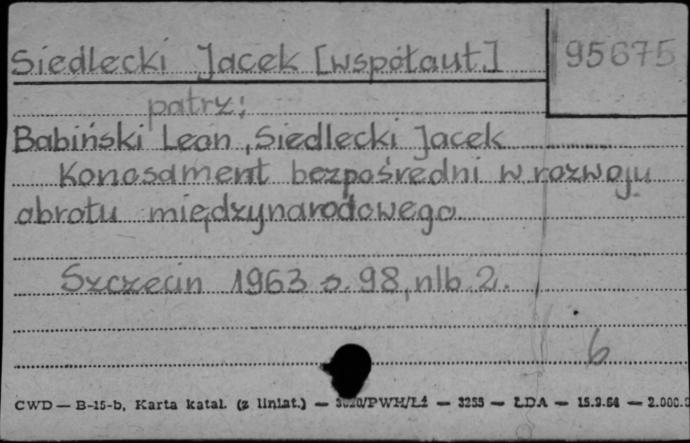 Siedlecki Jacek [współaut.] 95675
patrz:
Babiński Leon, Siedlecki Jacek
Konosament bezpośredni w rozwoju
obrotu międzynarodowego.
Szczecin 1963 s. 98, nlb 2.
6
CWD — B-15-b, Karta katal. (z liniat.) — /PWH/Łź — 3253 — ŁDA — 15.9.64 —